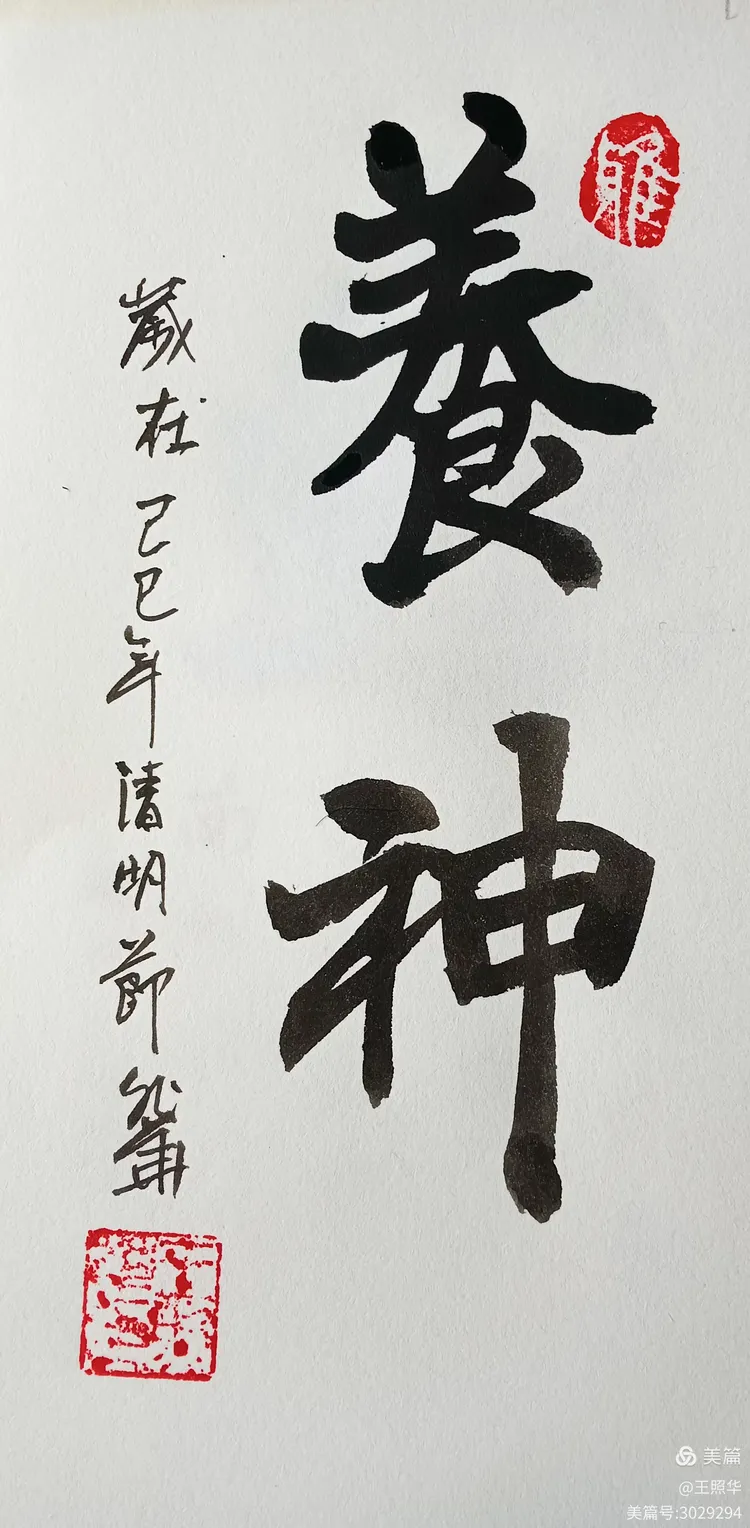 養神
歲在己巳年清明節
美篇
@王照华
美篇号:3029294